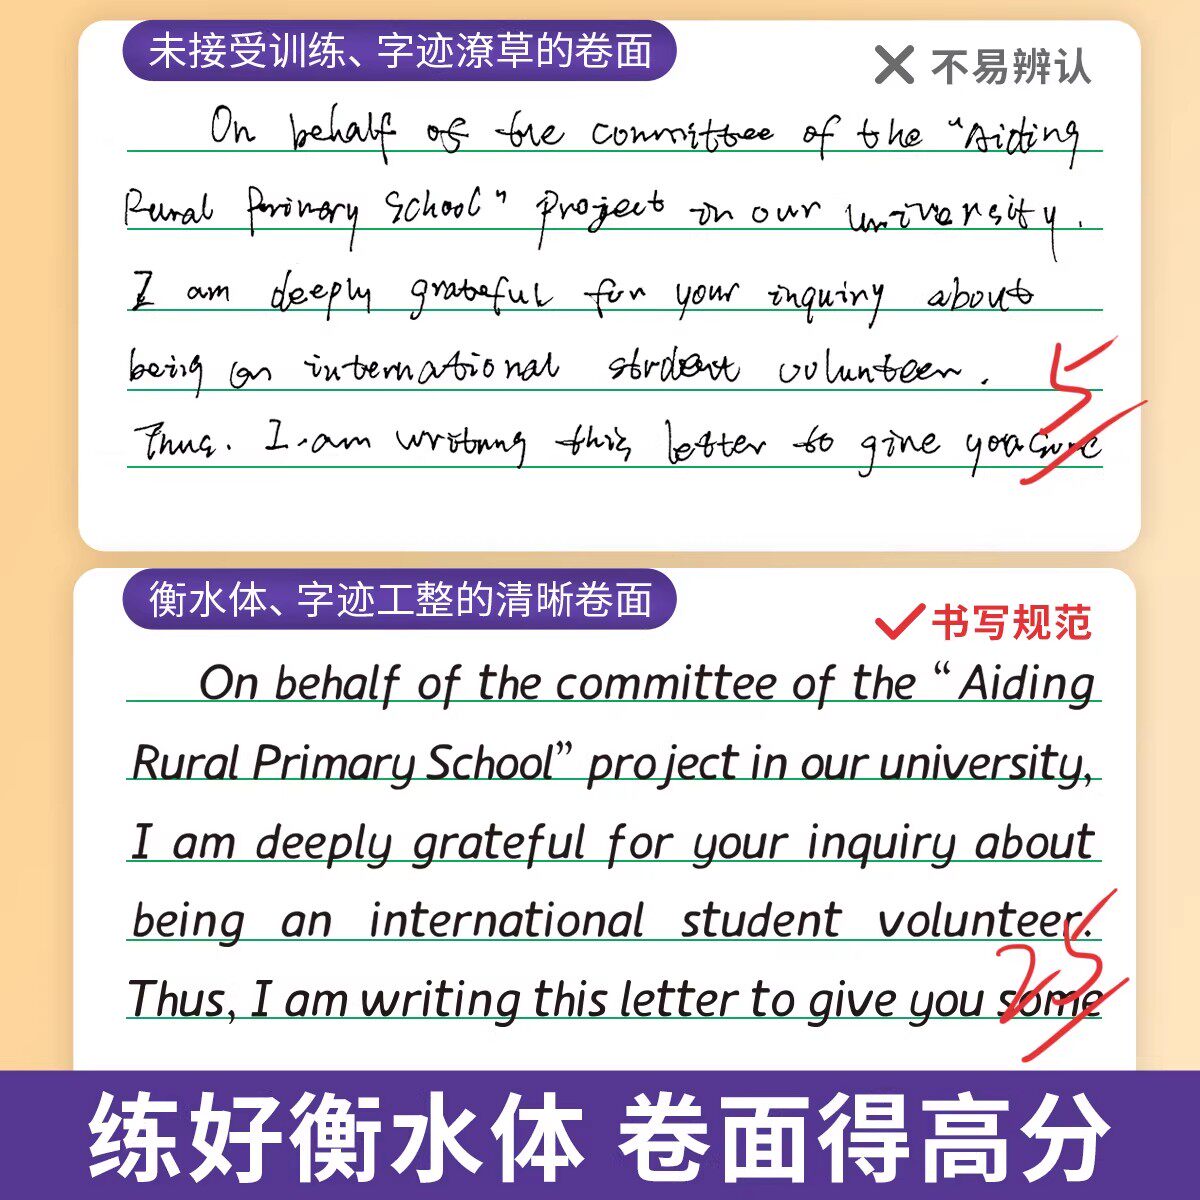 未接受训练、字迹潦草的卷面
不易辨认
On behalf of the committee of the "Aiding
Rural Primary School" project in our university.
I am deeply grateful for your inquiry about
being an international student volunteer.
Thus. I am writing this letter to give you some
5
衡水体、字迹工整的清晰卷面
书写规范
On behalf of the committee of the “Aiding
Rural Primary School” project in our university,
I am deeply grateful for your inquiry about
being an international student volunteer.
Thus, I am writing this letter to give you some
25
练好衡水体 卷面得高分